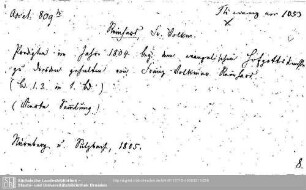 Ascet. 809 b
Reinhard, Fr. Volkm.
Predigten im Jahre 1804 bey dem evangelischen Hofgottesdienste
zu Dresden gehalten von Franz Volkmar Reinhard
(Bd. 1. 2. in 1. Bd.)
(Vierte Sammlung)
Nürnberg u. Sulzbach, 1805.
8.
Sächsische Landesbibliothek -
Staats- und Universitätsbibliothek Dresden